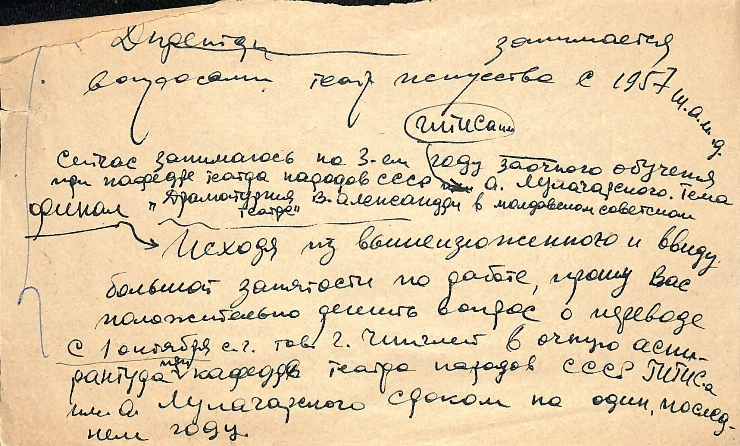 Директор занимается
вопросами театр искусства с 1957
и т. д.
ГИТИСа им
Сейчас занимаюсь на 3-ем году заочного обучения
при кафедре театра народов СССР А. Луначарского. Тема
финал "Драматургия В. Александри в молдавском советском
театре"
Исходя из вышеизложенного и ввиду
большой занятости по работе, прошу Вас
положительно решить вопрос о переводе
с 1 октября с.г. тов. Г. Чиплей в очную аспи-
рантуру при кафедре театра народов СССР ГИТИСа
им. А. Луначарского сроком на один, послед-
нем году.